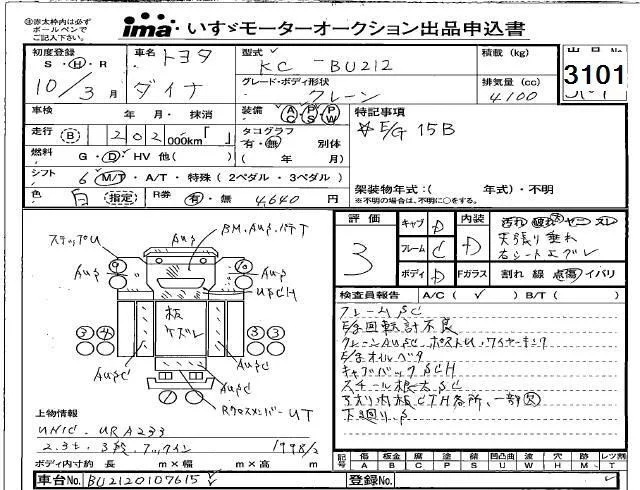 赤太枠内は必ず
ボールペンで
ご記入下さい。
ima いすゞモーターオークション出品申込書
初度登録 車名 トヨタ 型式 KC-BU212 積載 (kg) 出品No.
S・H・R
10/3月 ダイナ グレード・ボディ形状 クレーン 排気量 (cc) 4100 3101
車検 年・月・抹消 装備 AC PS PW 特記事項
走行 B 202000km「 」 タコグラフ 有・無 別体 ☆E/G 15B
燃料 G・D・HV 他( ) ( 年 月)
シフト 6 M/T・A/T・特殊 (2ペダル・3ペダル) 架装物年式:( 年式)・不明
色 白 指定 R券 有・無 4,640円 ※不明の場合は、不明に○をする。
評価 3 キャブ D 内装 D 汚れ 破れ ヤニ スレ
フレーム C 天張り垂れ
右シートエグレ
ボディ D Fガラス 割れ 線 点傷 イバリ
検査員報告 A/C (✓) B/T ( )
フレームSC
E/g回転計不良
クレーンAUSC ポストU、ワイヤーキンク
E/gオイルベタ
キャブバックSCH
スチール根太SC
アオリ内板CTH各所、一部欠
下廻りS
ステップU
AUS
BM,AUS,パテT
AUS
AUS
USCH
板
ケズレ
3 4 3 3
AUSC
AUSC
AUSC
RクロスメンバーUT
上物情報
UNIC. URA233
2.3t. 3段. フックイン 1998/2
ボディ内寸約 長 m×幅 m×高 m
記号 傷 A 板金 B 腐 C 塗 P 錆 S 凹凸曲 U 波 W 穴 H 跡 M レツ割 T
車台No. BU2120107615 登録No.